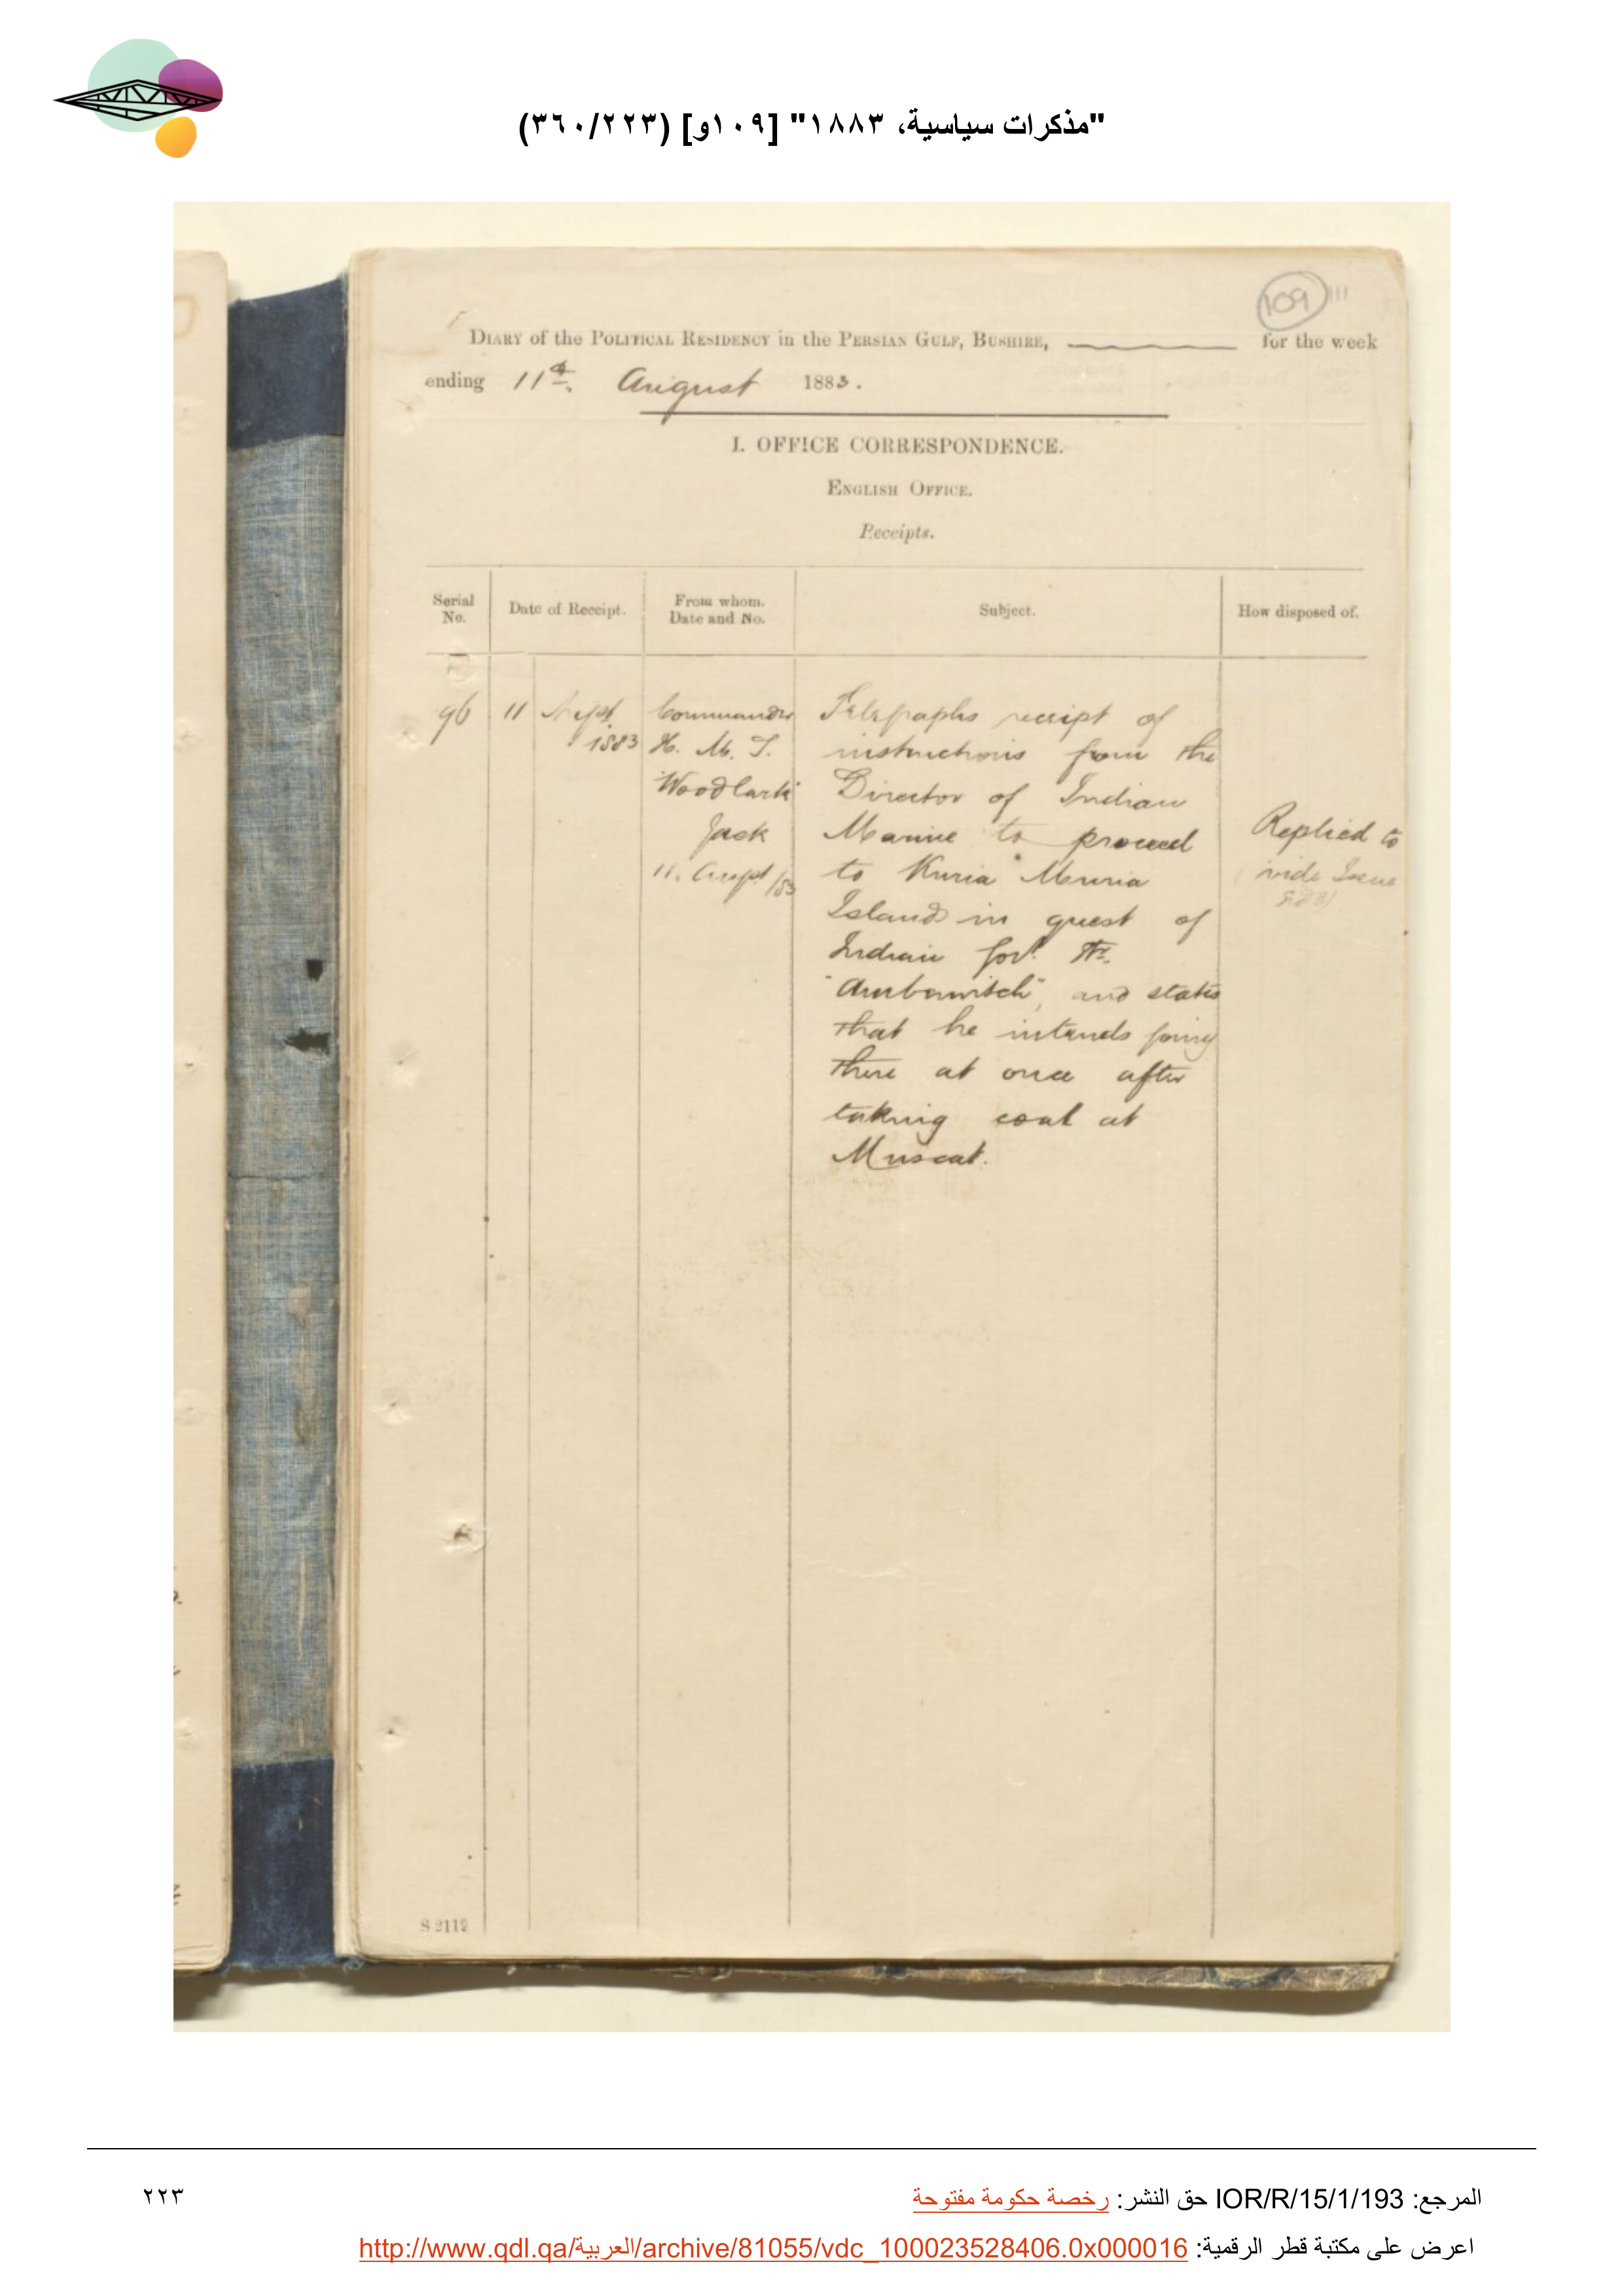 "مذكرات سياسية، ١٨٨٣" [١٠٩و] (٣٦٠/٢٢٣)
109
DIARY of the POLITICAL RESIDENCY in the PERSIAN GULF, BUSHIRE, for the week
ending 11th. August 1883.
I. OFFICE CORRESPONDENCE.
ENGLISH OFFICE.
Receipts.
Serial No.
Date of Receipt.
From whom. Date and No.
Subject.
How disposed of.
96
11
1883
Commander
H. M. S.
"Woodlark"
Jask
11. Augt /83
Telegraphs receipt of
instructions from the
Director of Indian
Marine to proceed
to Kuria Muria
Islands in quest of
Indian Gov. Str.
"Amberwitch", and states
that he intends going
there at once after
taking coal at
Muscat.
Replied to
vide Issue
S 2112
المرجع: IOR/R/15/1/193 حق النشر: رخصة حكومة مفتوحة
٢٢٣
اعرض على مكتبة قطر الرقمية: http://www.qdl.qa/العربية/archive/81055/vdc_100023528406.0x000016